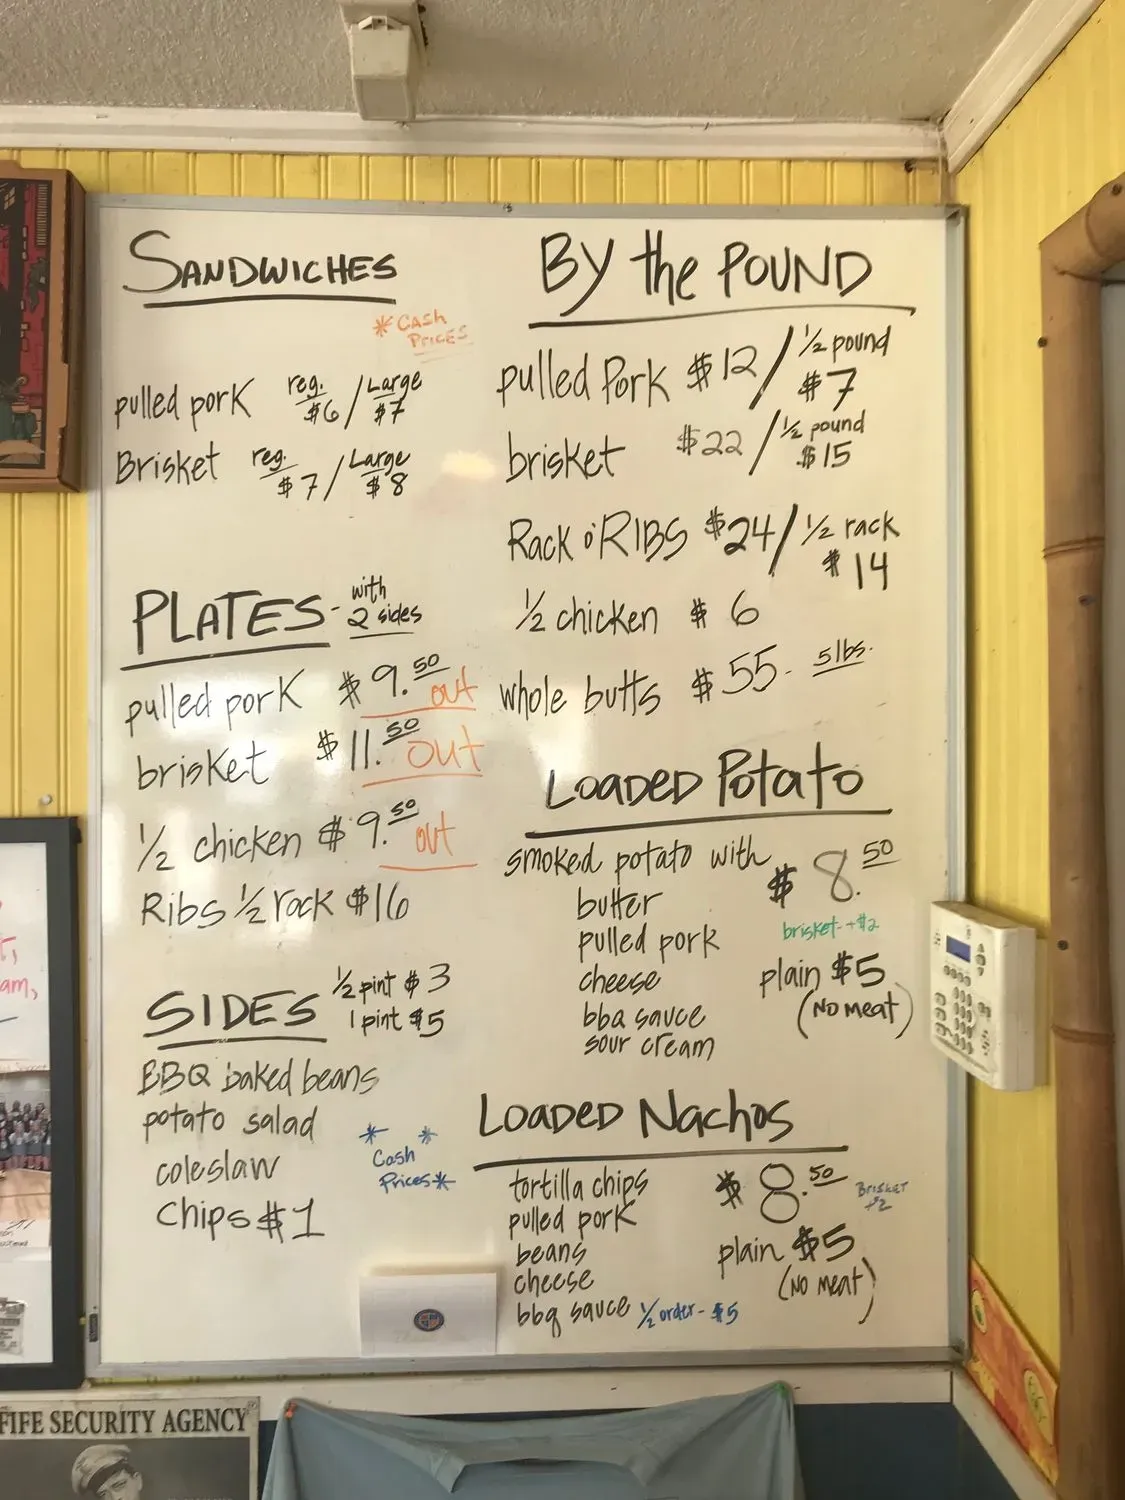 SANDWICHES
* Cash
Prices
pulled pork reg. $6 / Large $7
Brisket reg. $7 / Large $8
PLATES - with 2 sides
pulled pork $9.50 out
brisket $11.50 out
1/2 chicken $9.50 out
Ribs 1/2 rack $16
SIDES 1/2 pint $3
1 pint $5
BBQ baked beans
potato salad
coleslaw
Chips $1
* *
Cash
Prices*
BY the POUND
pulled Pork $12 / 1/2 pound $7
brisket $22 / 1/2 pound $15
Rack o' RIBS $24 / 1/2 rack $14
1/2 chicken $6
whole butts $55 - 5 lbs.
LOADED Potato
smoked potato with $8.50
butter
pulled pork brisket - +$2
cheese plain $5
bbq sauce (No meat)
sour cream
LOADED Nachos
tortilla chips $8.50 Brisket +$2
pulled pork
beans plain $5
cheese (No meat)
bbq sauce 1/2 order - $5
am,
FIFE SECURITY AGENCY